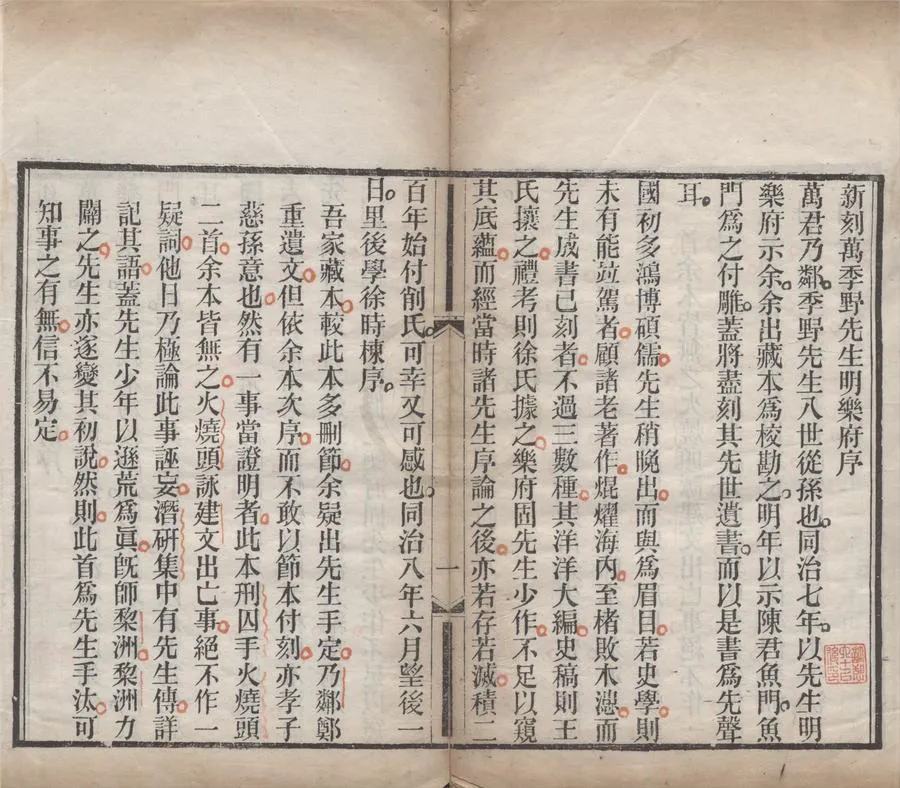 新刻萬季野先生明樂府序
萬君乃鄰。季野先生八世從孫也。同治七年。以先生明
樂府示余。余出藏本爲校勘之。明年以示陳君魚門。魚
門爲之付雕。蓋將盡刻其先世遺書。而以是書爲先聲
耳。
國初多鴻博碩儒。先生稍晚出。而與爲眉目。若史學。則
未有能竝駕者。顧諸老著作。焜燿海內。至楮敗木漶。而
先生成書已刻者。不過三數種。其洋洋大編。史稿則王
氏攘之。禮考則徐氏據之。樂府固先生少作。不足以窺
其底蘊。而經當時諸先生序論之後。亦若存若滅。積二
百年始付削氏。可幸又可感也。同治八年六月望後一
日。里後學徐時棟序。
吾家藏本。較此本多刪節。余疑出先生手定。乃鄰鄭
重遺文。但依余本次序。而不敢以節本付刻。亦孝子
慈孫意也。然有一事當證明者。此本刑囚手火燒頭
二首。余本皆無之。火燒頭詠建文出亡事。絕不作一
疑詞。他日乃極論此事誣妄。潛研集中有先生傳。詳
記其語。蓋先生少年以遜荒爲眞。旣師黎洲。黎洲力
闢之。先生亦遂變其初說。然則此首爲先生手汰。可
知事之有無。信不易定。
一